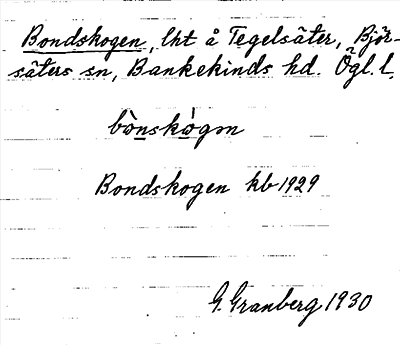 Bondskogen, lht å Tegelsäter, Björ-
säters sn, Bankekinds hd. Ögl. l.
bònskó̀gən
Bondskogen kb 1929
G. Granberg 1930